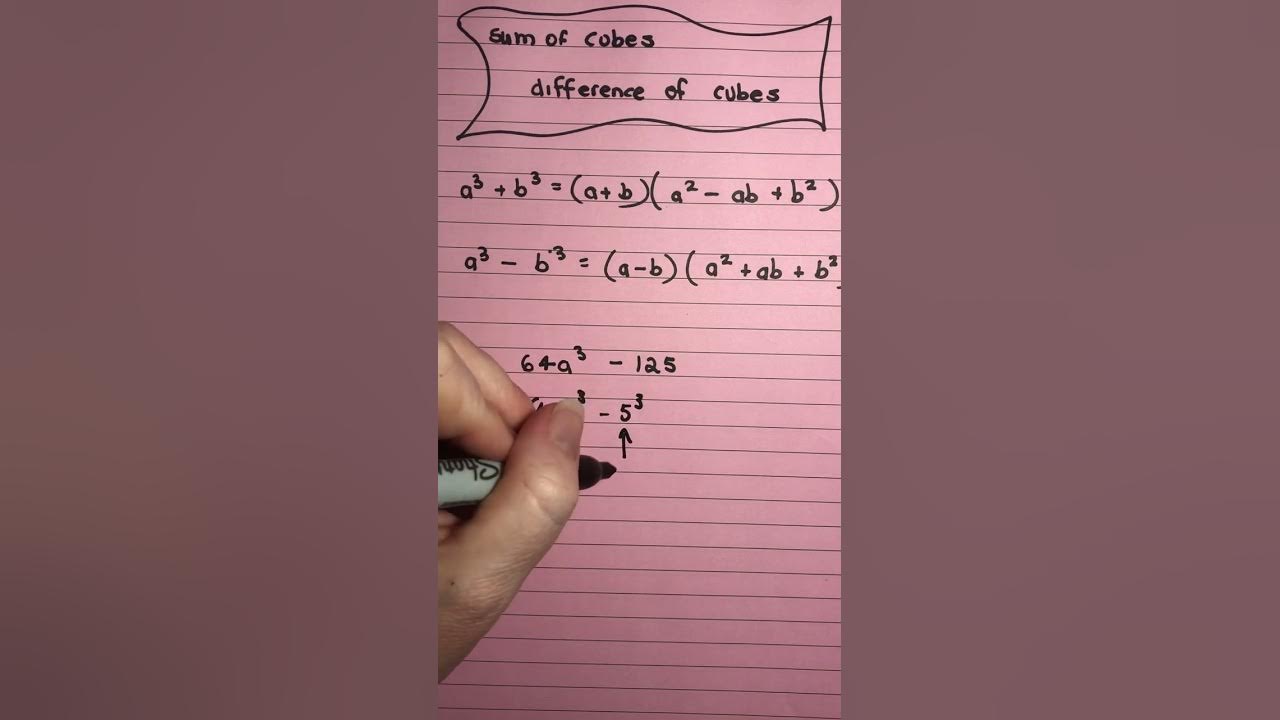 sum of cubes
difference of cubes
a³ + b³ = (a+b)(a² - ab + b²)
a³ - b³ = (a-b)(a² + ab + b²
64a³ - 125
³ - 5³
↑